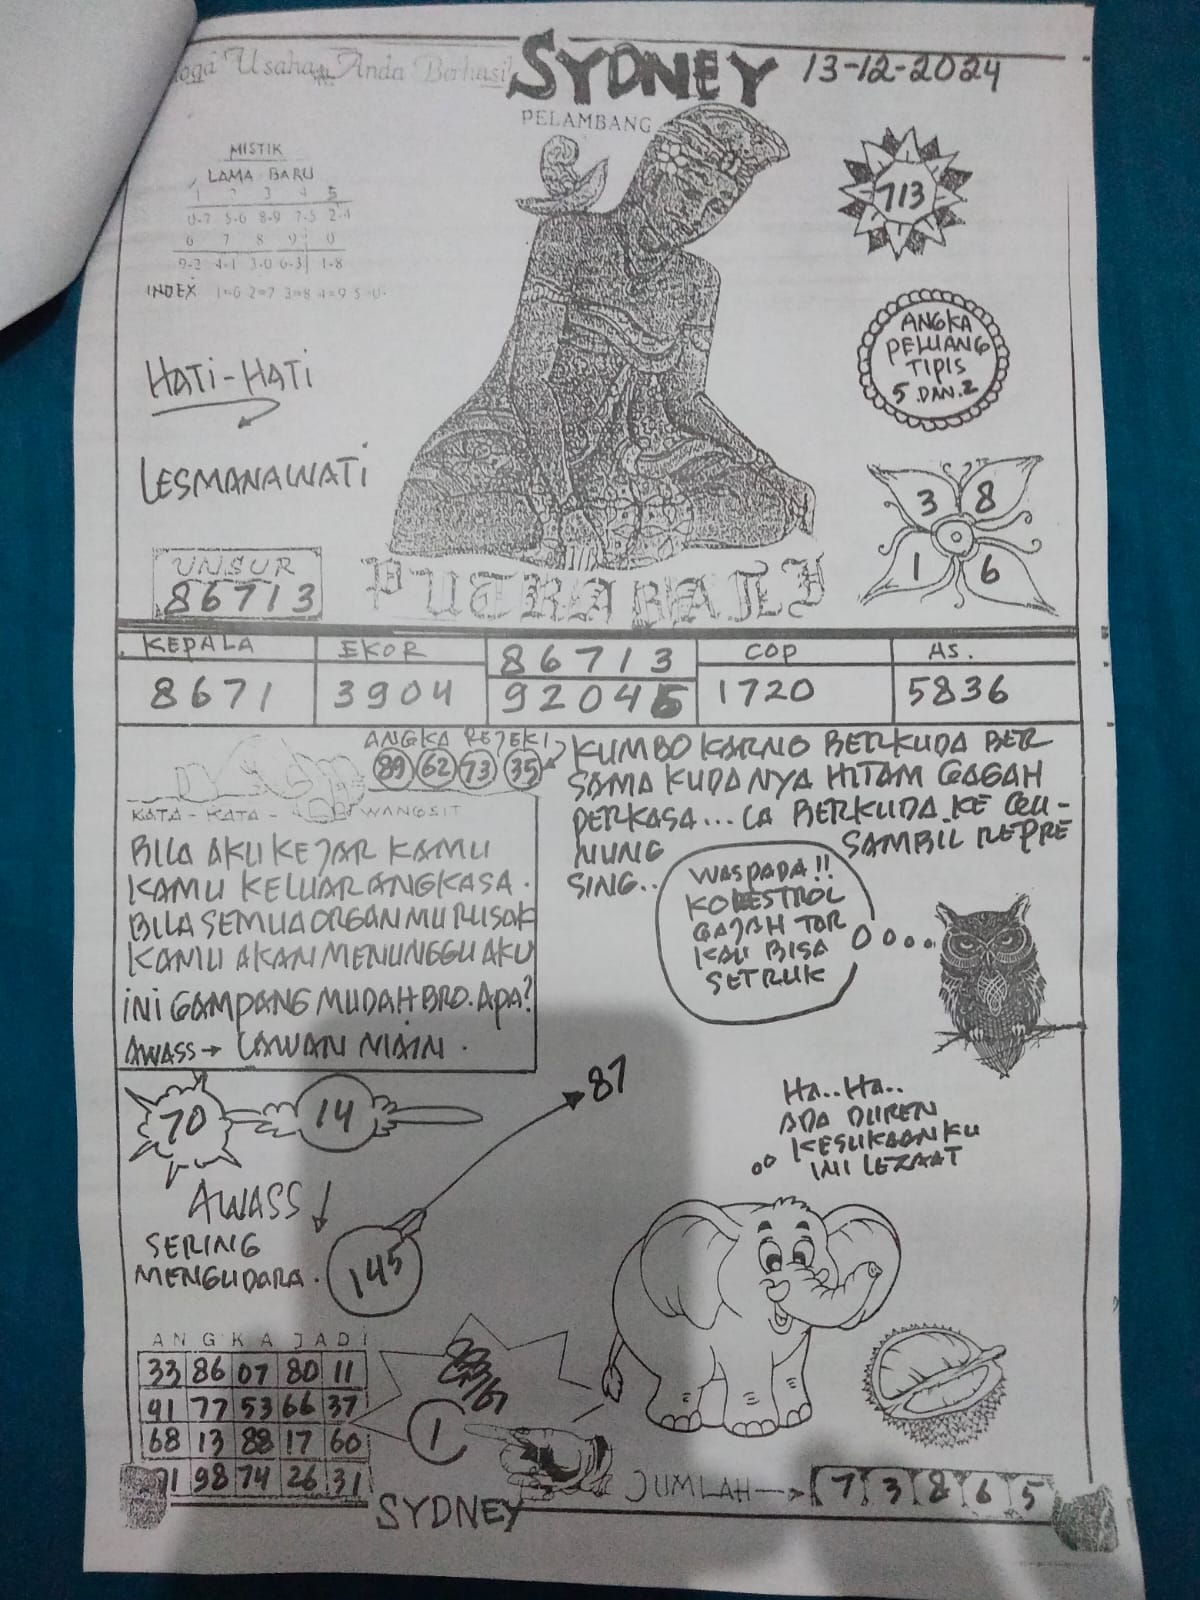 Usaha Anda Berhasil
SYDNEY 13-12-2024
PELAMBANG
MISTIK
LAMA BARU
1 2 3 4 5
0-7 5-6 8-9 7-5 2-4
6 7 8 9 0
9-2 4-1 3-0 6-3 1-8
INDEX 1=6 2=7 3=8 4=9 5=0
713
ANGKA
PELUANG
TIPIS
5 DAN.2
HATI-HATI
LESMANAWATI
3 8
1 6
UNSUR
86713
PUTRA BALI
KEPALA EKOR 86713 COP AS.
8671 3904 92045 1720 5836
ANGKA REJEKI
89 62 73 35
KUMBOKARNO BERKUDA BER
SAMA KUDANYA HITAM GAGAH
PERKASA... LA BERKUDA KE
NUNG SAMBIL REPRE
SING..
KATA-KATA-WANGSIT
BILA AKU KEJAR KAMU
KAMU KELUAR ANGKASA.
BILA SEMUA ORGANMU RUSAK
KAMU AKAN MENUNGGU AKU
INI GAMPANG MUDAH BRO. APA?
AWASS → LAWAN MAIN.
WASPADA!!
KOLESTROL
GAJAH TOR
KALI BISA
SETRUK
70 14 87
HA..HA..
ADA DUREN
KESUKAANKU
INI LEZAAT
AWASS ↓
SERING
MENGUDARA. 145
ANGKA JADI
33 86 07 80 11
91 77 53 66 37
68 13 88 17 60
71 98 74 26 31
1
JUMLAH → 7 3 8 6 5
SYDNEY